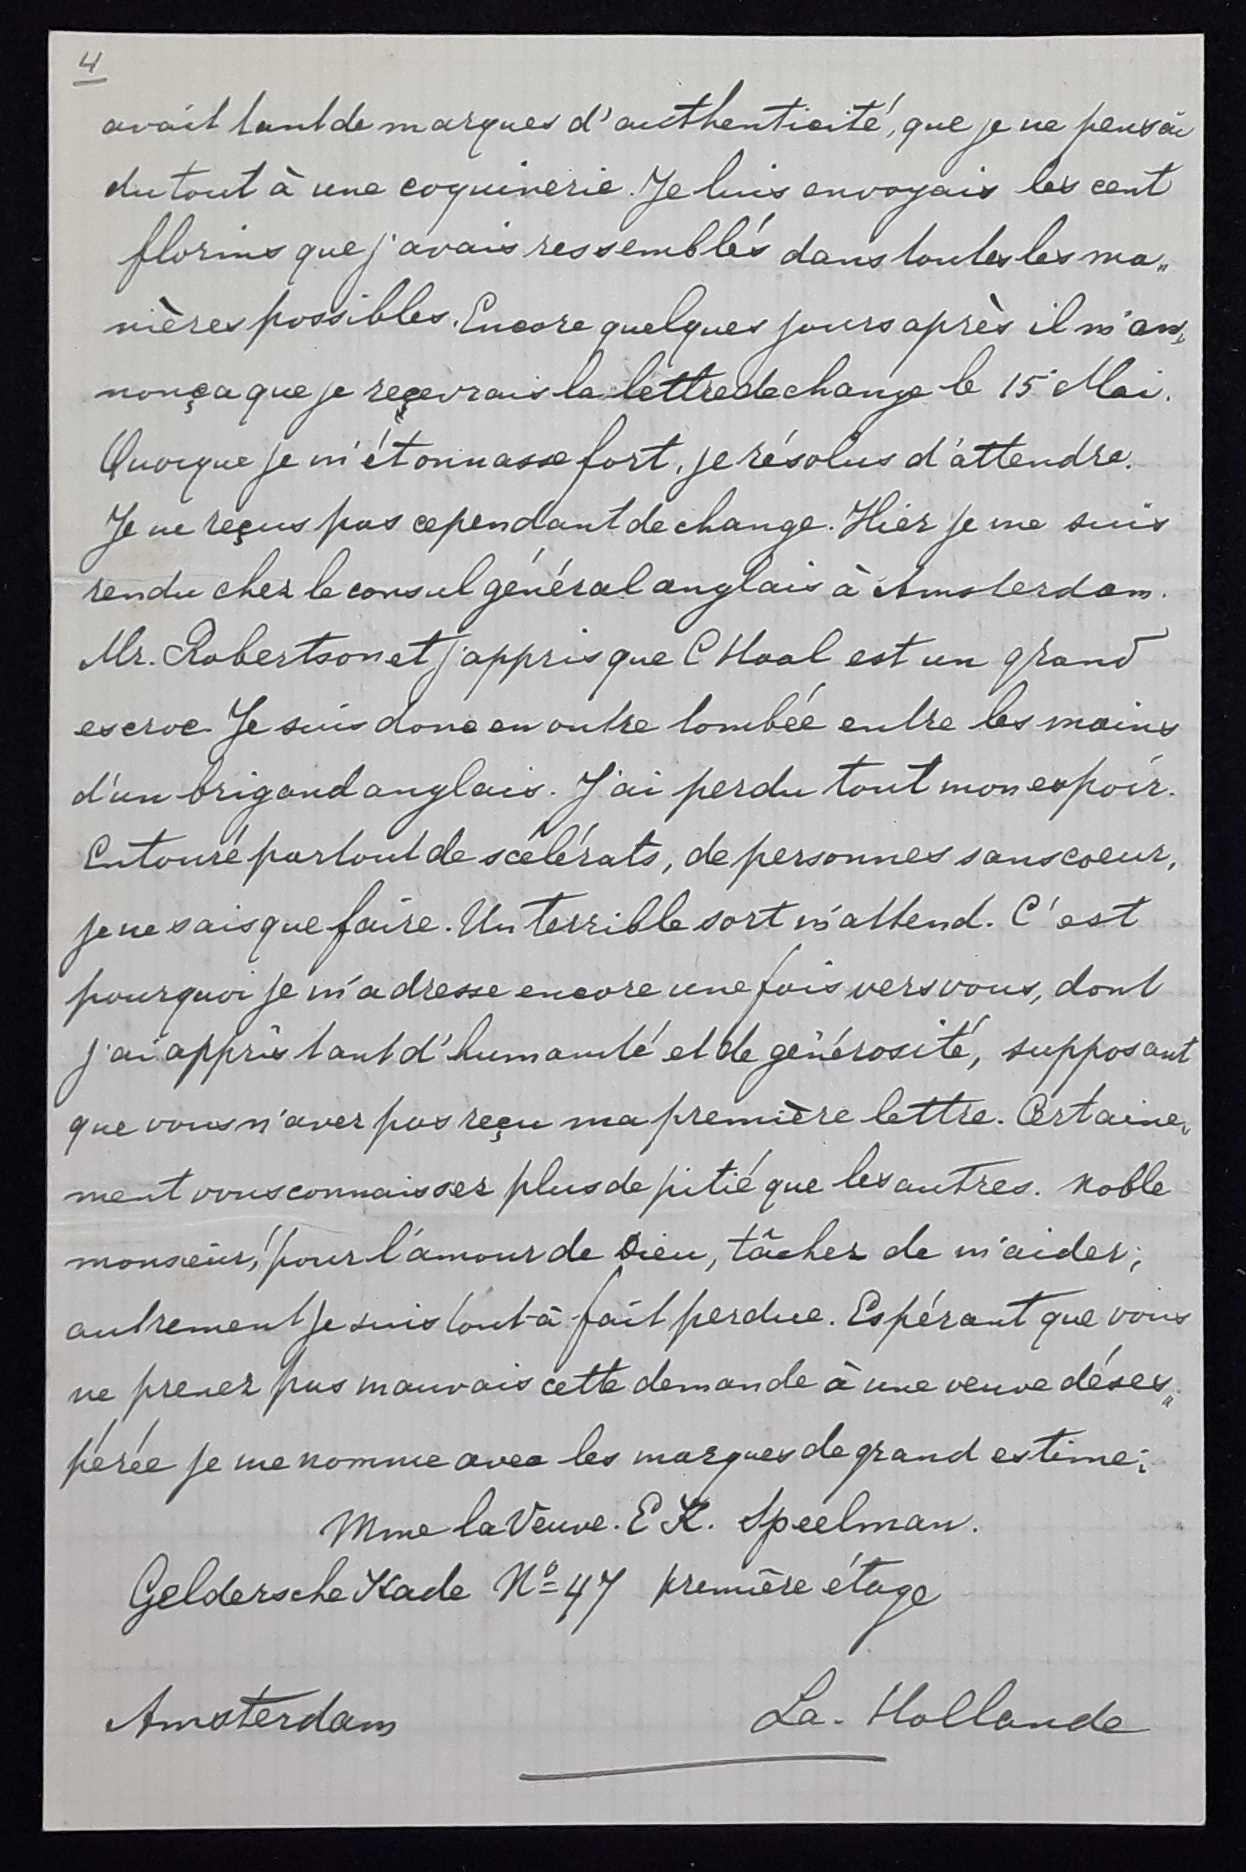 4
avait tant de marques d'authenticité, que je ne pensai
du tout à une coquinerie. Je luis envoyais les cent
florins que j'avais ressemblés dans toutes les ma„
nières possibles. Encore quelques jours après il m'an„
nonça que je reçevrais la lettre de change le 15 Mai.
Quoique je m'étonnasse fort, je résolus d'attendre.
Je ne reçus pas cependant de change. Hier je me suis
rendu chez le consul général anglais à Amsterdam.
Mr. Robertson et j'appris que C Haal est un grand
escroc. Je suis donc en outre tombée entre les mains
d'un brigand anglais. J'ai perdu tout mon espoir.
Entouré partout de scélérats, de personnes sans coeur,
je ne sais que faire. Un terrible sort m'attend. C'est
pourquoi je m'adresse encore une fois vers vous, dont
j'ai appris tant d'humanité et de générosité, supposant
que vous n'avez pas reçu ma première lettre. Certaine„
ment vous connaissez plus de pitié que les autres. Noble
monsieur, pour l'amour de Dieu, tâchez de m'aider;
autrement je suis tout-à-fait perdue. Espérant que vous
ne prenez pas mauvais cette demande à une veuve déses„
pérée je me nomme avec les marques de grand estime;
Mme la Veuve. E K. Speelman.
Geldersche Kade No 47 première étage
Amsterdam La. Hollande